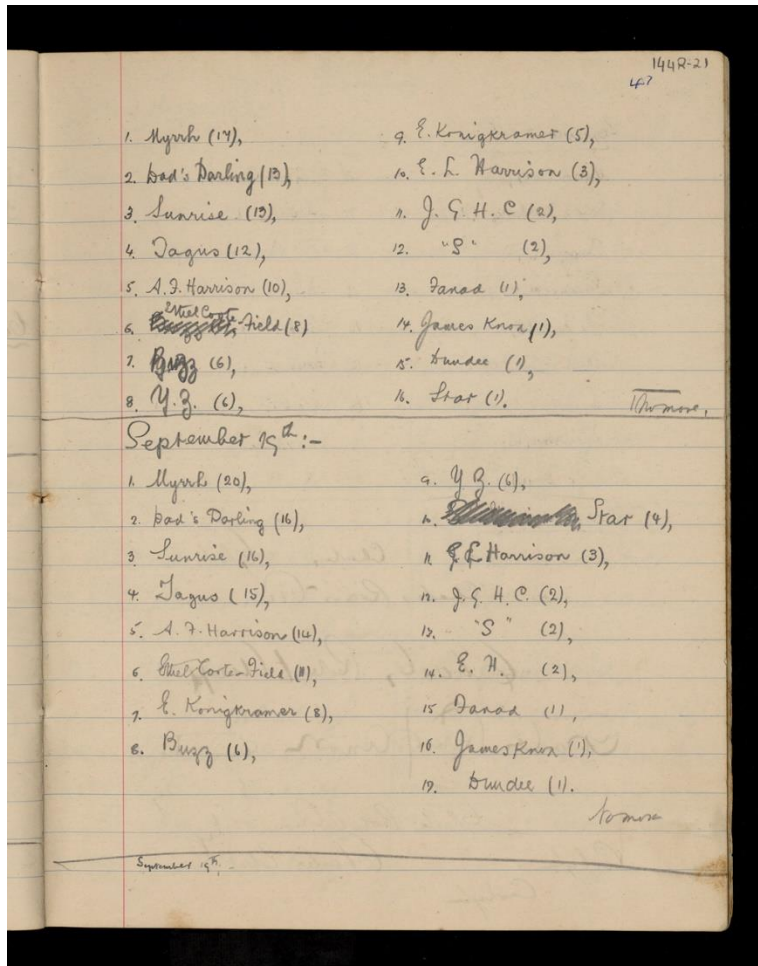 144R-21
47
1. Myrrh (17),
2. Dad's Darling (13),
3. Sunrise (13),
4. Tagus (12),
5. A.F. Harrison (10),
6. Ethel Corte-Field (8)
7. Buzz (6),
8. Y.Z. (6),
9. E. Konigkramer (5),
10. E. L. Harrison (3),
11. J. G. H. C (2),
12. "S" (2),
13. Fanad (1),
14. James Knox (1),
15. Dundee (1),
16. Star (1).
No more.
September 19th:-
1. Myrrh (20),
2. Dad's Darling (16),
3. Sunrise (16),
4. Tagus (15),
5. A. F. Harrison (14),
6. Ethel Corte-Field (11),
7. E. Konigkramer (8),
8. Buzz (6),
9. Y Z. (6),
10. Star (4),
11. E L Harrison (3),
12. J. G. H. C. (2),
13. "S" (2),
14. E. H. (2),
15 Fanad (1),
16. James Knox (1),
17. Dundee (1).
No more
September 19th.-